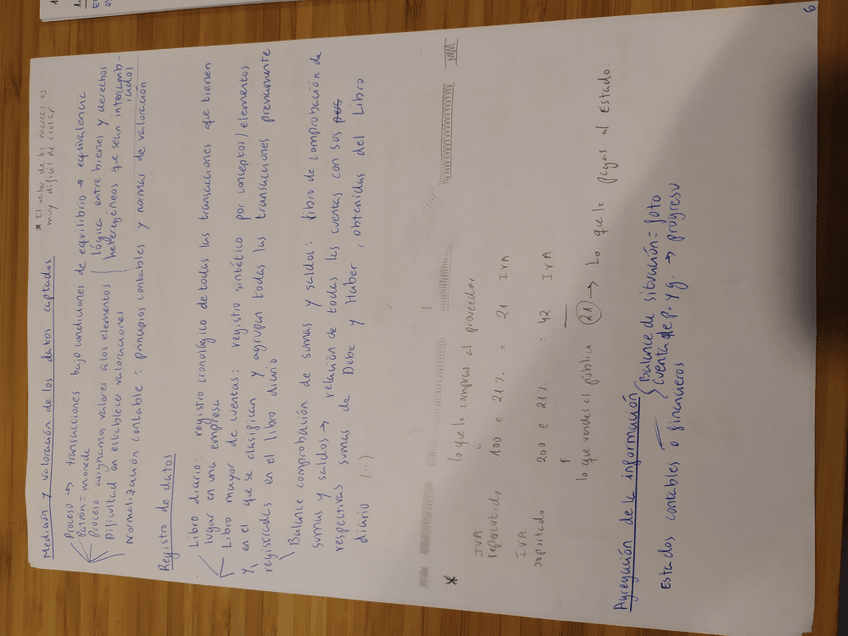 * El valor de las marcas es
muy difícil de
Medición y valoración de los datos captados
Proceso → transacciones bajo condiciones de equilibrio → equivalencia
lógica entre bienes y derechos
heterogéneos que sean intercamb-
iados
Patrón = moneda
Proceso: asignamos valores a los elementos
Dificultad en establecer valoraciones
Normalización contable: principios contables y normas de valoración
Registro de datos
Libro diario: registro cronológico de todas las transacciones que tienen
lugar en una empresa
Libro mayor de cuentas: registro sintético por conceptos/elementos
y en el que se clasifican y agrupan todas las transacciones previamente
registradas en el libro diario
Balance comprobación de sumas y saldos: libro de comprobación de
sumas y saldos → relación de todas las cuentas con sus
respectivas sumas de Debe y Haber, obtenidas del Libro
diario (...)
*
lo que le compras al proveedor
IVA
repercutido 100 e 21% = 21 IVA
IVA
soportado 200 e 21% = 42 IVA
lo que vendes al público 21 → Lo que le pagas al Estado.
Agregación de la información
Estados contables o financieros
Balance de situación = foto
Cuenta de P. y g. → progreso
6